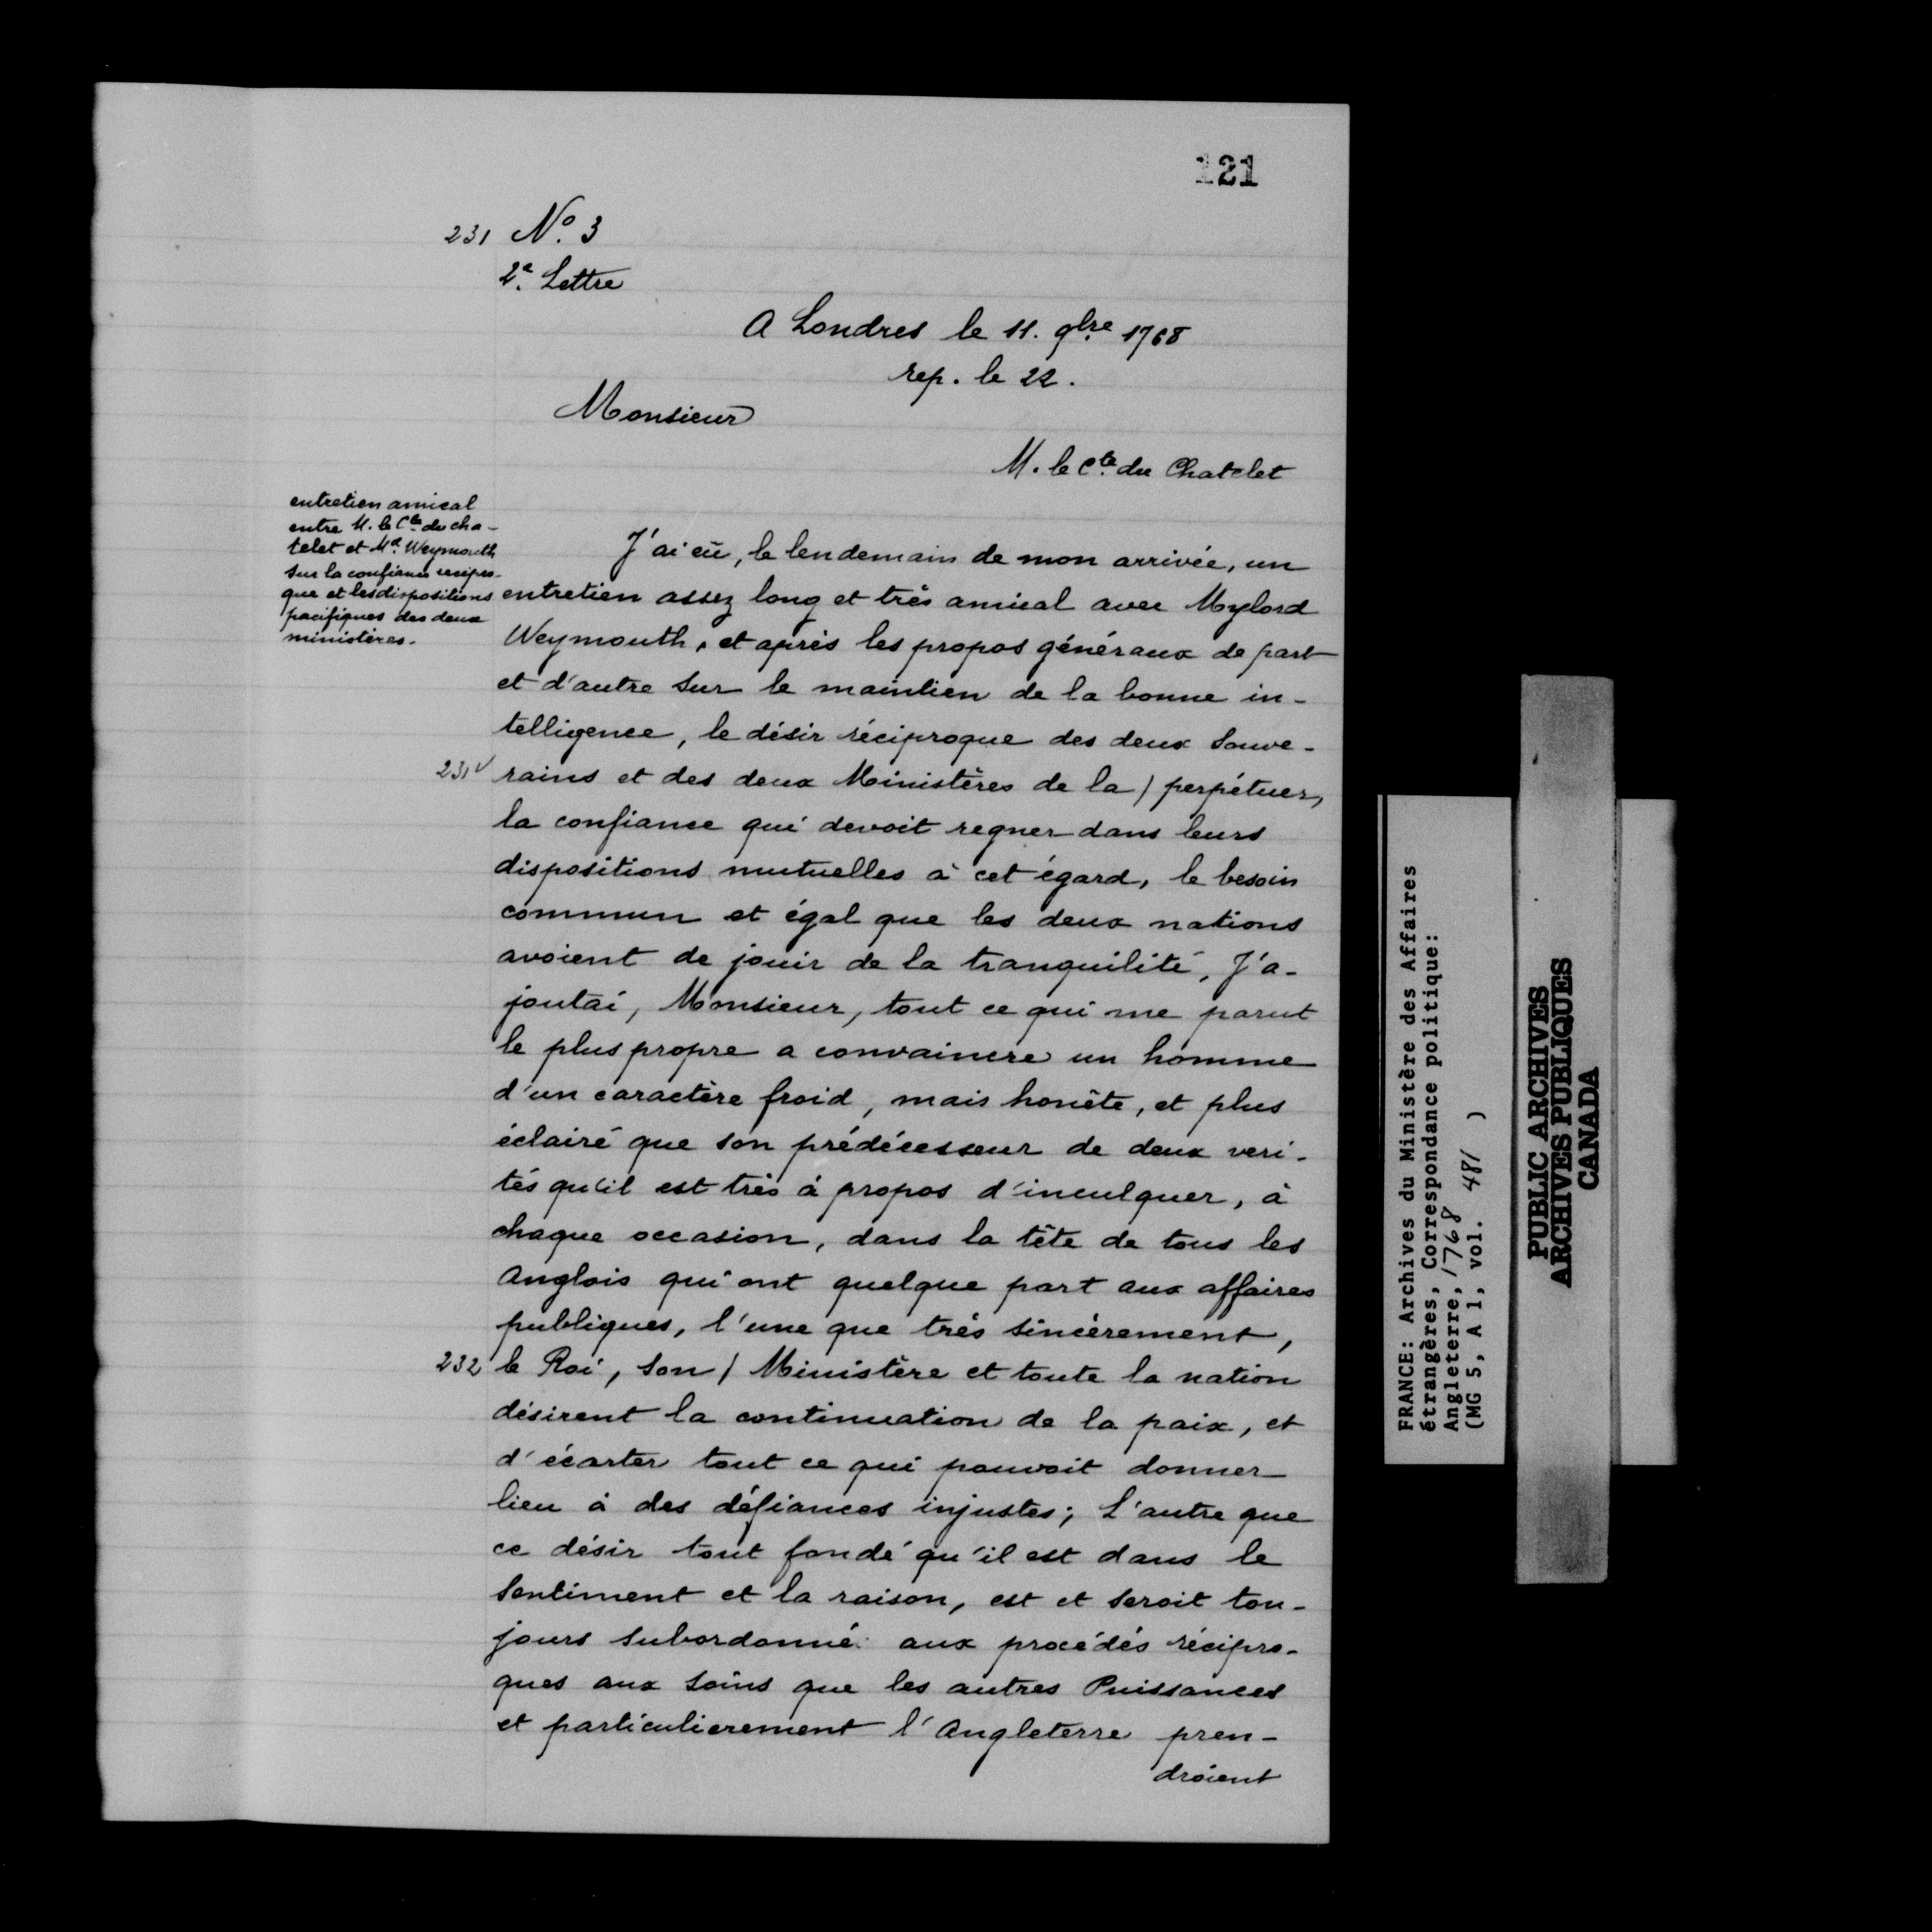 121
231 Nº. 3
2e. Lettre
A Londres le 11. 9bre. 1768
rep. le 22.
Monsieur
M. le Cte. du Chatelet
entretien amical
entre M. le Cte. du cha-
telet et Md. Weymouth
sur la confiance recipro-
que et les dispositions
pacifiques des deux
ministères.
J'ai eû, le lendemain de mon arrivée, un
entretien assez long et très amical avec Mylord
Weymouth, et après les propos généraux de part
et d'autre sur le maintien de la bonne in-
telligence, le désir réciproque des deux Souve-
231v rains et des deux Ministères de la / perpétuer,
la confiance qui devoit regner dans leurs
dispositions mutuelles à cet égard, le besoin
commun et égal que les deux nations
avoient de jouir de la tranquilité, J'a-
joutai, Monsieur, tout ce qui me parut
le plus propre a convaincre un homme
d'un caractère froid, mais honête, et plus
éclairé que son prédécesseur de deux veri-
tés qu'il est très à propos d'inculquer, à
chaque occasion, dans la tête de tous les
Anglois qui ont quelque part aux affaires
publiques, l'une que très sincèrement,
232 le Roi, son / Ministère et toute la nation
désirent la continuation de la paix, et
d'écarter tout ce qui pouvoit donner
lieu à des défiances injustes; L'autre que
ce désir tout fondé qu'il est dans le
Sentiment et la raison, est et seroit tou-
jours subordonné aux procédés récipro-
ques aux soins que les autres Puissances
et particulierement l'Angleterre pren-
droient
FRANCE: Archives du Ministère des Affaires
étrangères, Correspondance politique:
Angleterre, 1768
(MG 5, A 1, vol. 481 )
PUBLIC ARCHIVES
ARCHIVES PUBLIQUES
CANADA